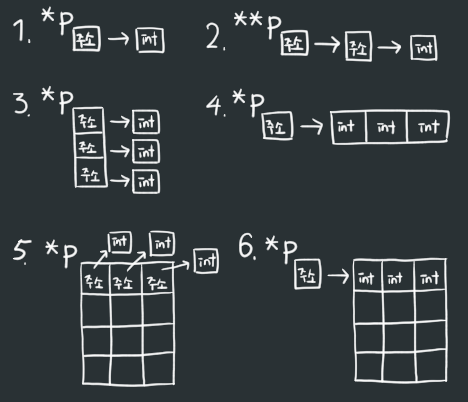 1. *p 주소 → int
2. **p 주소 → 주소 → int
3. *p 주소 → int
주소 → int
주소 → int
4. *p 주소 → int int int
5. *p int int int
주소 주소 주소
6. *p 주소 → int int int